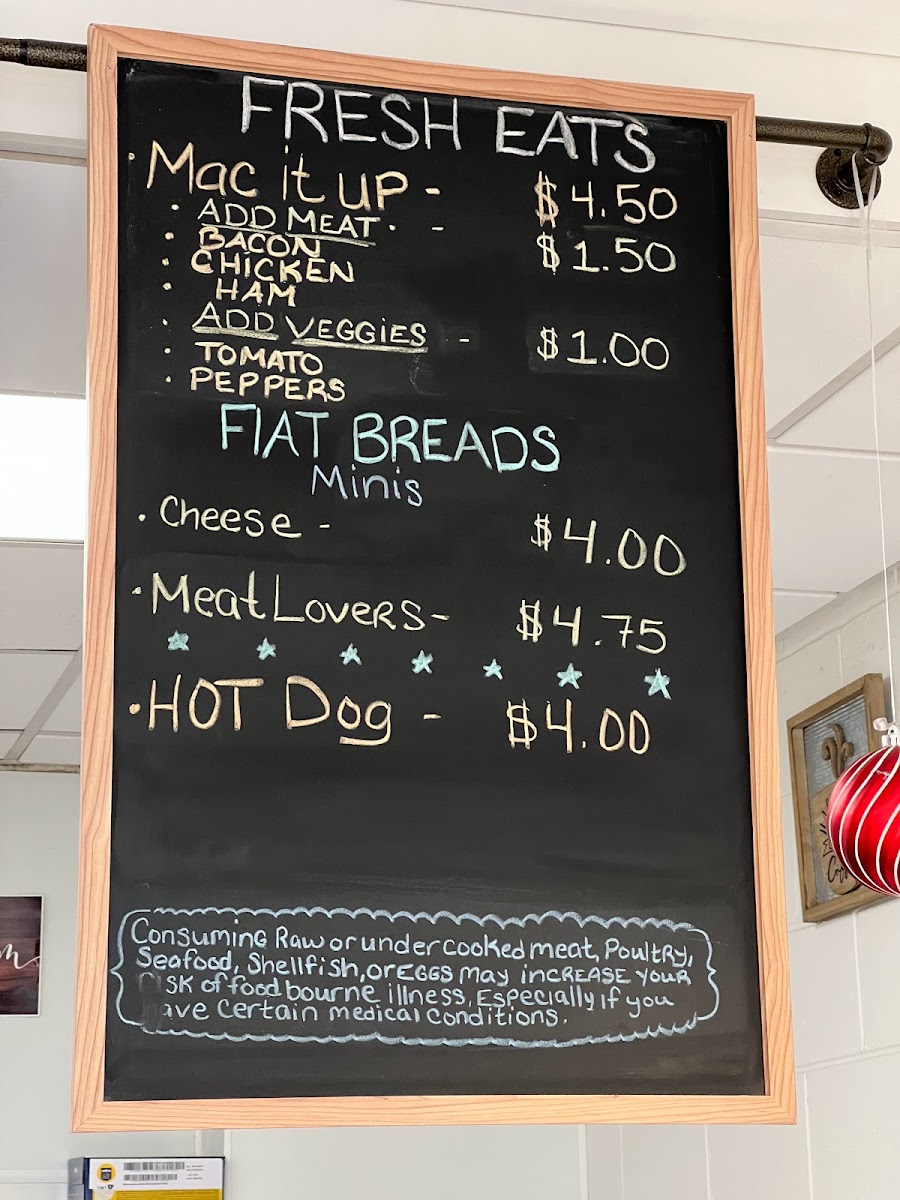 FRESH EATS
· Mac it up - $4.50
· ADD MEAT · - $1.50
· BACON
· CHICKEN
· HAM
· ADD VEGGIES - $1.00
· TOMATO
· PEPPERS
FlAT BREADS
Minis
· Cheese - $4.00
· Meat Lovers - $4.75
· HOT Dog - $4.00
Consuming Raw or under cooked meat, Poultry,
Seafood, Shellfish, or EGGS may increase your
SK of food bourne illness, Especially if you
ave certain medical conditions.